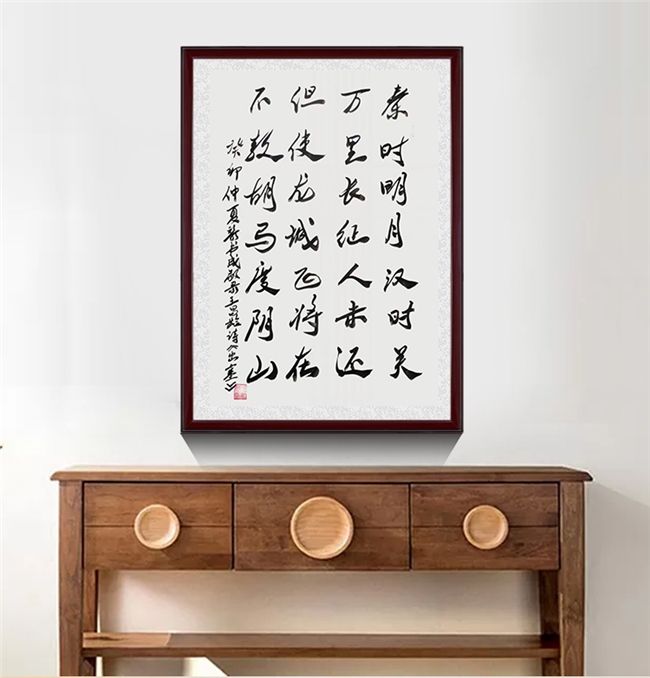 秦时明月汉时关
万里长征人未还
但使龙城飞将在
不教胡马度阴山
癸卯仲夏 王昌龄诗《出塞》